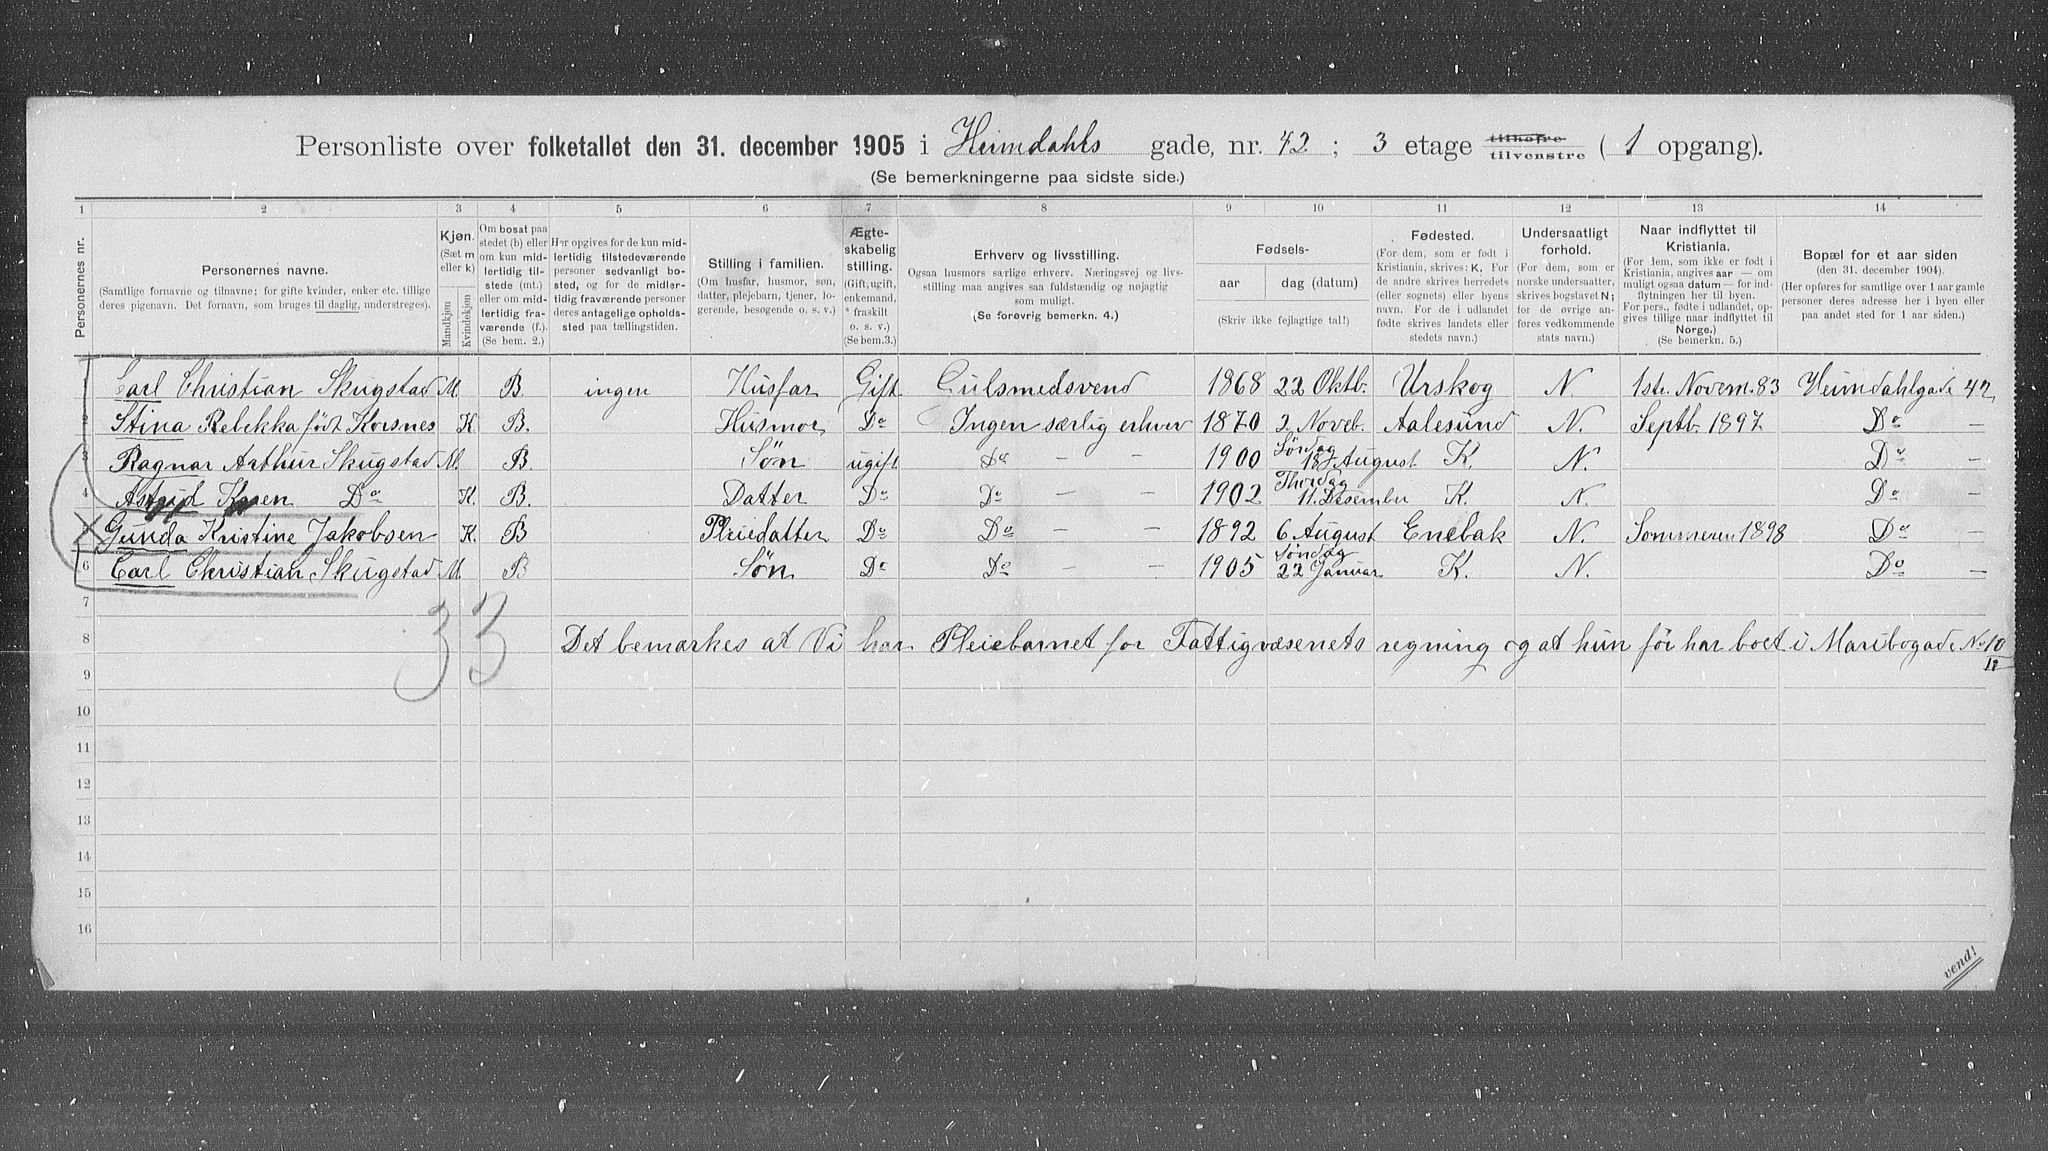 Personliste over folketallet den 31. december 1905 i Heimdahls gade, nr. 42; 3 etage tilhøire tilvenstre (1 opgang).
(Se bemerkningerne paa sidste side.)
1 2 3 4 5 6 7 8 9 10 11 12 13 14
Personernes nr.
Personernes navne.
(Samtlige fornavne og tilnavne; for gifte kvinder, enker etc. tillige deres pigenavn. Det fornavn, som bruges til daglig, understreges).
Kjøn.
(Sæt m eller k)
Mandkjøn
Kvindekjøn
Om bosat paa stedet (b) eller om kun midlertidig tilstede (mt.) eller om midlertidig fraværende (f.).
(Se bem. 2.)
Her opgives for de kun midlertidig tilstedeværende personer sedvanligt bosted, og for de midlertidig fraværende personer deres antagelige opholdssted paa tællingstiden.
Stilling i familien.
(Om husfar, husmor, søn, datter, plejebarn, tjener, logerende, besøgende o. s. v.)
Ægteskabelig stilling.
(Gift, ugift, enkemand, * fraskilt o. s. v.)
(Se bem.3.)
Erhverv og livsstilling.
Ogsaa husmors særlige erhverv. Næringsvej og livsstilling maa angives saa fuldstændig og nøjagtig som muligt.
(Se forøvrig bemerkn. 4.)
Fødsels-
aar
dag (datum)
(Skriv ikke fejlagtige tal!)
Fødested.
(For dem, som er født i Kristiania, skrives: K. For de andre skrives herredets (eller sognets) eller byens navn. For de i udlandet fødte skrives landets eller stedets navn.)
Undersaatligt forhold.
(For dem, som er norske undersaatter, skrives bogstavet N; for de øvrige anføres vedkommende stats navn.)
Naar indflyttet til Kristiania.
(For dem, som ikke er født i Kristiania, angives aar — om muligt ogsaa datum — for indflytningen her til byen. For pers., fødte i udlandet, opgives tillige naar indflyttet til Norge.)
(Se bemerkn. 5.)
Bopæl for et aar siden
(den 31. december 1904).
(Her opføres for samtlige over 1 aar gamle personer deres adresse her i byen eller paa andet sted for 1 aar siden.)
1 Carl Christian Skugstad M. B. ingen Husfar Gift Gulsmedsvend 1868 22 Oktb. Urskog N. 1ste Novem. 83 Heimdahlgade 42
2 Stina Rebekka født Korsnes K B. Husmor Do Ingen særlig erhver 1870 2 Noveb. Aalesund N. Septb. 1897 Do —
3 Ragnar Arthur Skugstad M. B. Søn ugift Do — — 1900 Søndag 18 August K. N. Do —
4 Astrid Karen Do K. B. Datter Do Do — — 1902 Thorsdag 11. Desember K. N. Do —
Gunda Kristine Jakobsen K. B Pleiedatter Do Do — — 1892 6 August Enebak N. Sommeren 1898 Do —
6 Carl Christian Skugstad M. B Søn Do Do — — 1905 Søndag 22 Januar K. N. Do —
7
33
8 Det bemærkes at Vi har Pleiebarnet for Fattigvæsenets regning og at hun før har boet i Maribogade No 10/12
9
10
11
12
13
14
15
16
vend!